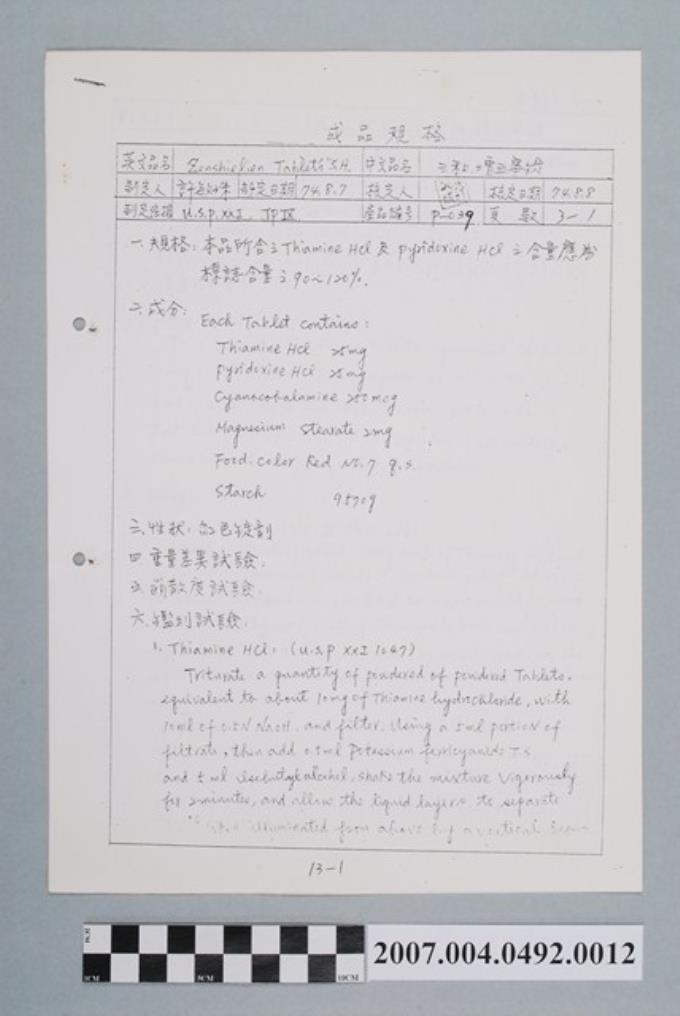 成品規格
英文品名 Zenshielien Tablets "S.H." 中文品名
制定人 制定日期 74.8.7 核定人 核定日期 74.8.8
制定依據 U.S.P. XXI, JP IX 產品編號 P-039 頁數 3-1
一、規格：本品所含之Thiamine HCl 及 pyridoxine HCl 之含量應為
標誌含量之90~120%.
二、成分：
Each Tablet contains:
Thiamine HCl 25mg
pyridoxine HCl 25mg
Cyanocobalamine 250mcg
Magnesium Stearate 2mg
Food. Color Red No.7 q.s.
Starch
三、性狀：紅色錠劑
四、重量差異試驗：
五、崩散度試驗：
六、鑑別試驗：
1. Thiamine HCl: (U.S.P XXI 1047)
Triturate a quantity of powdered of powdered Tablets.
equivalent to about 10mg of Thiamine hydrochloride, with
10ml of 0.5N NaOH, and filter. Using a 5ml portion of
filtrate, then add 0.5ml Potassium ferricyanide T.S.
and 5ml isobutyl alcohol, shake the mixture vigorously
for 2minutes, and allow the liquid layers to separate
illuminated from above by a vertical beam
13-1
2007.004.0492.0012
1CM 5CM 10CM